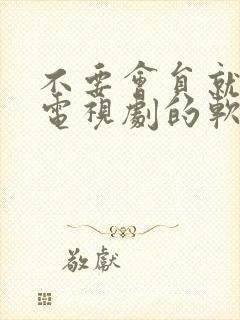 不要會員就
電視劇的軟
敬獻